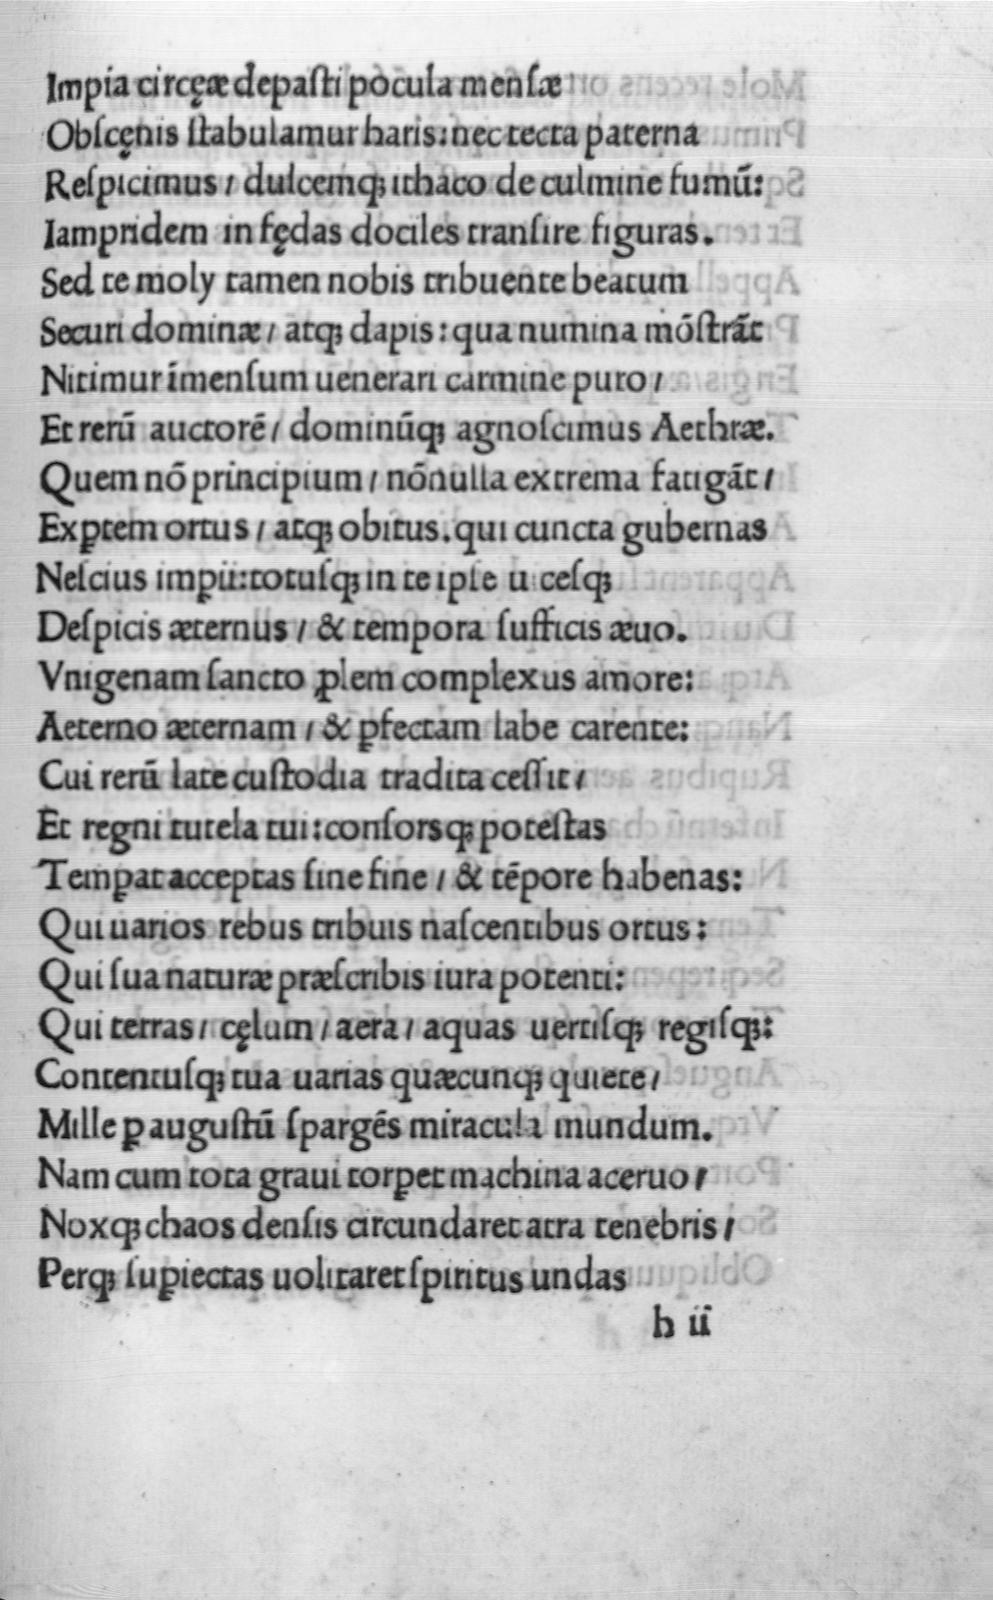 Impia circęæ depaſti pocula menſæ
Obſcęnis ſtabulamur haris: nec tecta paterna
Reſpicimus / dulcemqꝫ ithaco de culmine fumū:
Iampridem in fędas dociles tranſire figuras.
Sed te moly tamen nobis tribuente beatum
Securi dominæ / atqꝫ dapis: qua numina mōſtrāt
Nitimur īmenſum uenerari carmine puro /
Et rerū auctorē / dominūqꝫ agnoſcimus Aethræ.
Quem nō principium / nōnulla extrema fatigāt /
Exꝑtem ortus / atqꝫ obitus. qui cuncta gubernas
Neſcius imꝑii: totuſqꝫ in te ipſe uiceſqꝫ
Deſpicis æternus / & tempora ſufficis æuo.
Vnigenam ſancto ꝓlem complexus amore:
Aeterno æternam / & ꝑfectam labe carente:
Cui rerū late cuſtodia tradita ceſſit /
Et regni tutela tui: conſorsqꝫ poteſtas
Temꝑat acceptas ſine fine / & tēpore habenas:
Qui uarios rebus tribuis naſcentibus ortus:
Qui ſua naturæ præſcribis iura potenti:
Qui terras / cęlum / aera / aquas uertiſqꝫ regiſqꝫ:
Contentuſqꝫ tua uarias quæcunqꝫ quiete /
Mille ꝑ auguſtū ſpargēs miracula mundum.
Nam cum tota graui torꝑet machina aceruo /
Noxqꝫ chaos denſis circundaret atra tenebris /
Perqꝫ ſuꝑiectas uolitaret ſpiritus undas
h ii